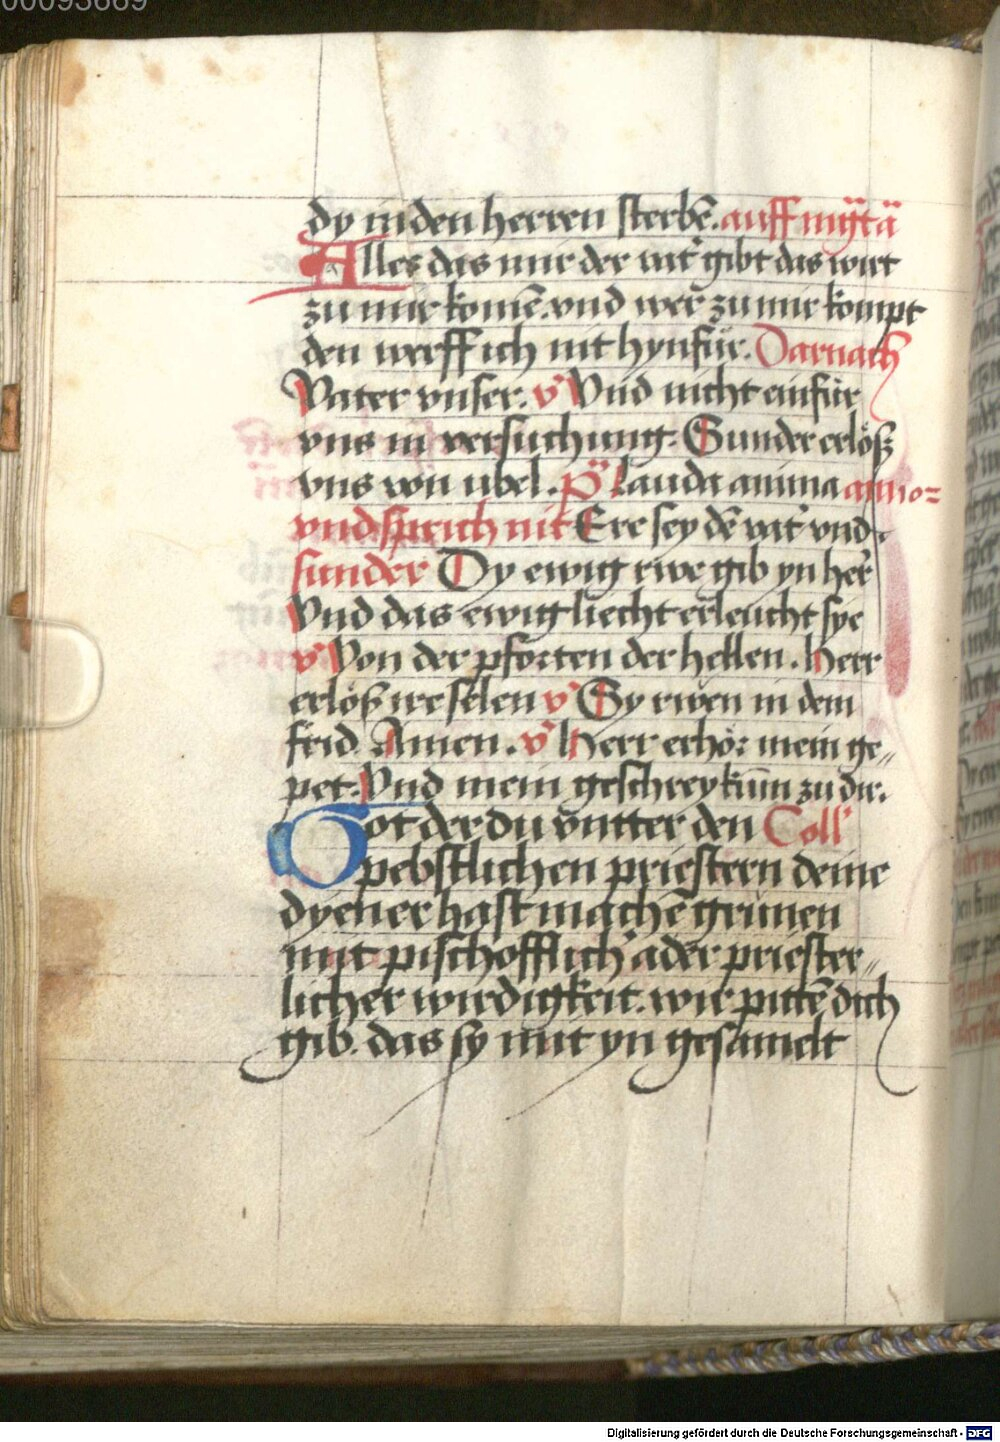 00093669
dy in den herren sterbē. auff mӱtā
Alles das mir der vat᷑ gibt das wirt
zu mir komē. vnd wer zu mir kompt
den werff ich nit hynfür. Darnach
Vater vnser. v᷑ Vnd nicht einfür
vns in versuchung. Sunder erlöß
vns von ubel. pͦ̈ Lauda anima
vnd sprich nit Ere sey dē vat᷑ vnd
sunder Dy ewig rwe gib yn her᷑
Vnd das ewig liecht erleucht sye
v᷑ Von der pforten der hellen. Herr
erlöß ire selen v᷑ Sy rwen in dem
frid Amen. v᷑ Herr erhör mein ge⸗
pet. Vnd mein geschrey kūm zu dir.
Got der du vntter den Coll᷑
pebstlichen priestern deine
dyener hast machē grünen
mit pischofflich᷑ ader priester⸗
licher wirdigkeit. wir pittē dich
gib. das sy mit yn gesamelt
Digitalisierung gefördert durch die Deutsche Forschungsgemeinschaft - DFG